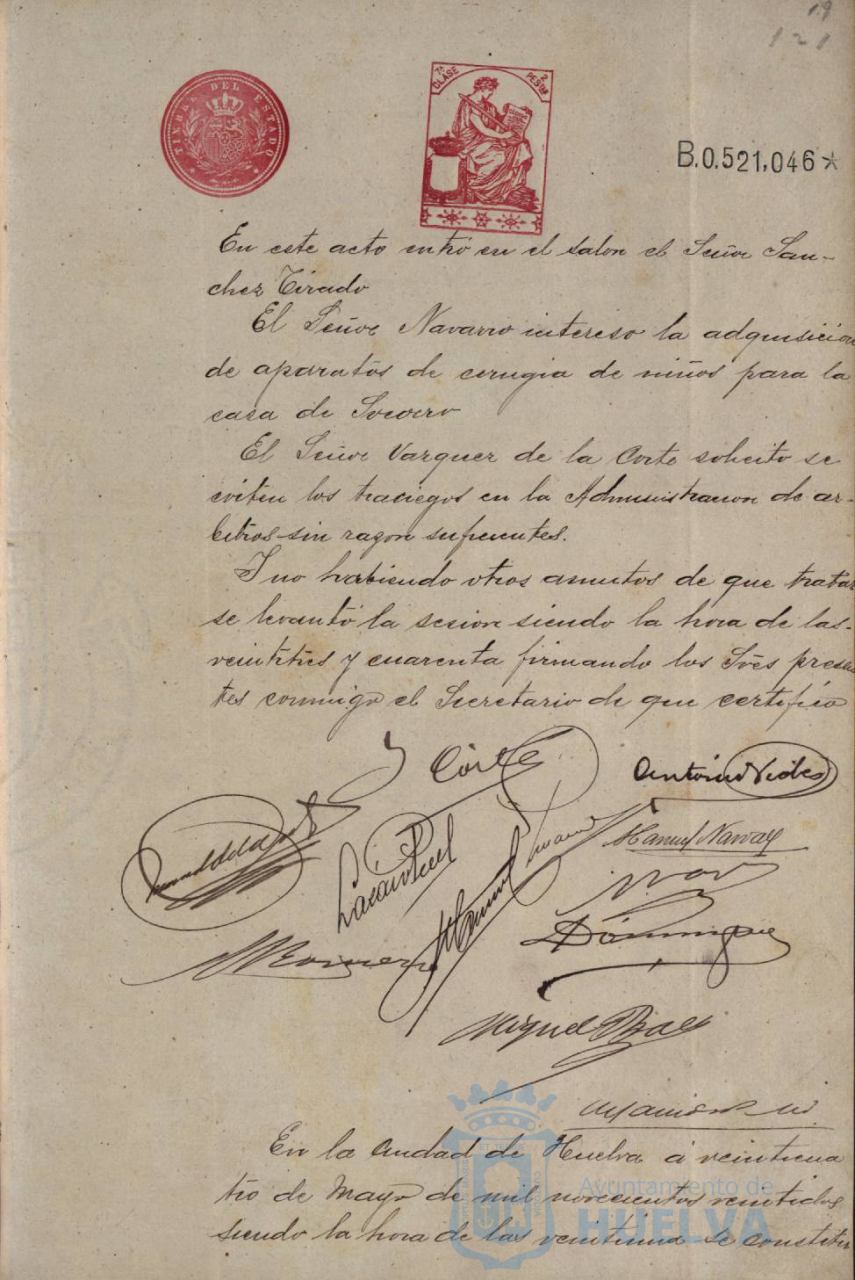 19
121
TIMBRE DEL ESTADO
7ª CLASE
2 PESTAS
B.0.521,046*
En este acto entró en el salon el Señor San-
chez Tirado
El Señor Navarro intereso la adquisicion
de aparatos de cirugia de niños para la
casa de Socorro
El Señor Vazquez de la Corte solicito se
eviten los traciegos en la Administracion de ar-
bitros sin razon suficientes.
I no habiendo otros asuntos de que tratar
se levantó la sesion siendo la hora de las
veintitres y cuarenta firmando los Sres presen
tes conmigo el Secretario de que certifico
Corte
Antonio Vides
Manuel Navarro
Manuel
MRomero
Dominguez
Miguel
En la Ciudad de Huelva á veinticua
tro de Mayo de mil novecientos veintidos
siendo la hora de las veintiuna se constitu
Ayuntamiento de
HUELVA